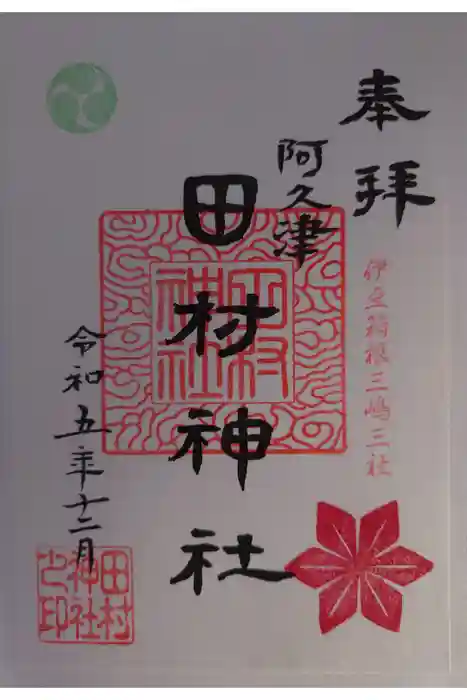 奉拝
伊豆箱根三嶋三社
阿久津
田村神社
田村神社
令和五年十二月
田村神社之印